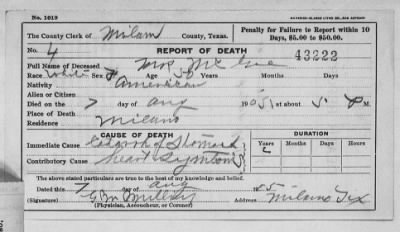 No. 1019
The County Clerk of Milam County, Texas.
Penalty for Failure to Report within 10 Days, $5.00 to $50.00.
No. 4 REPORT OF DEATH 43222
Full Name of Deceased Mrs Mc Gee
Race White Sex Age 50 Years Months Days
Nativity American
Alien or Citizen
Died on the 7 day of Aug 190 5 at about 5 P M.
Place of Death
Residence Milano
CAUSE OF DEATH DURATION
Immediate Cause of Stomach Years Months Days
Contributory Cause heart
The above stated particulars are true to the best of my knowledge and belief.
Dated this 7 day of Aug 1 05
(Signature) Address Milano Tex
(Physician, Accoucheur, or Coroner)